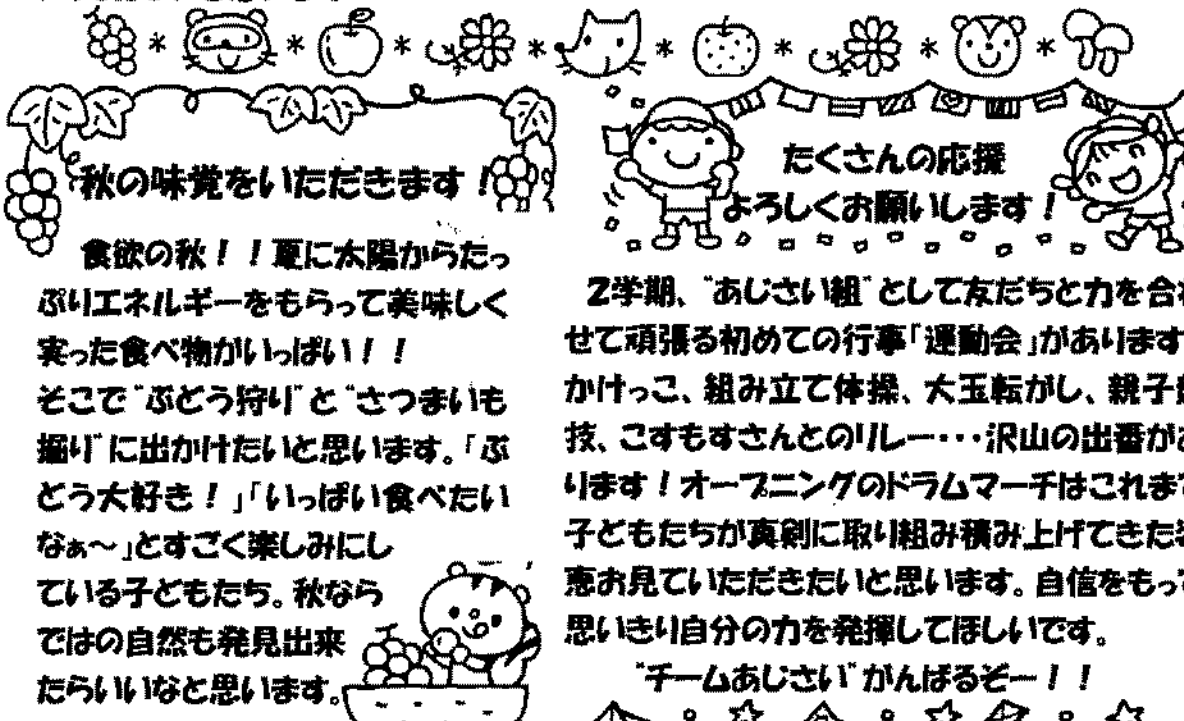 秋の味覚をいただきます！
食欲の秋！！夏に太陽からたっ
ぷりエネルギーをもらって美味しく
実った食べ物がいっぱい！！
そこで"ぶどう狩り"と"さつまいも
掘り"に出かけたいと思います。「ぶ
どう大好き！」「いっぱい食べたい
なぁ～」とすごく楽しみにし
ている子どもたち。秋なら
ではの自然も発見出来
たらいいなと思います。
たくさんの応援
よろしくお願いします！
2学期、"あじさい組"として友だちと力を合わ
せて頑張る初めての行事「運動会」があります
かけっこ、組み立て体操、大玉転がし、親子競
技、こすもすさんとのリレー・・・沢山の出番があ
ります！オープニングのドラムマーチはこれまで
子どもたちが真剣に取り組み積み上げてきた
恵お見ていただきたいと思います。自信をもって
思いきり自分の力を発揮してほしいです。
"チームあじさい"がんばるぞー！！